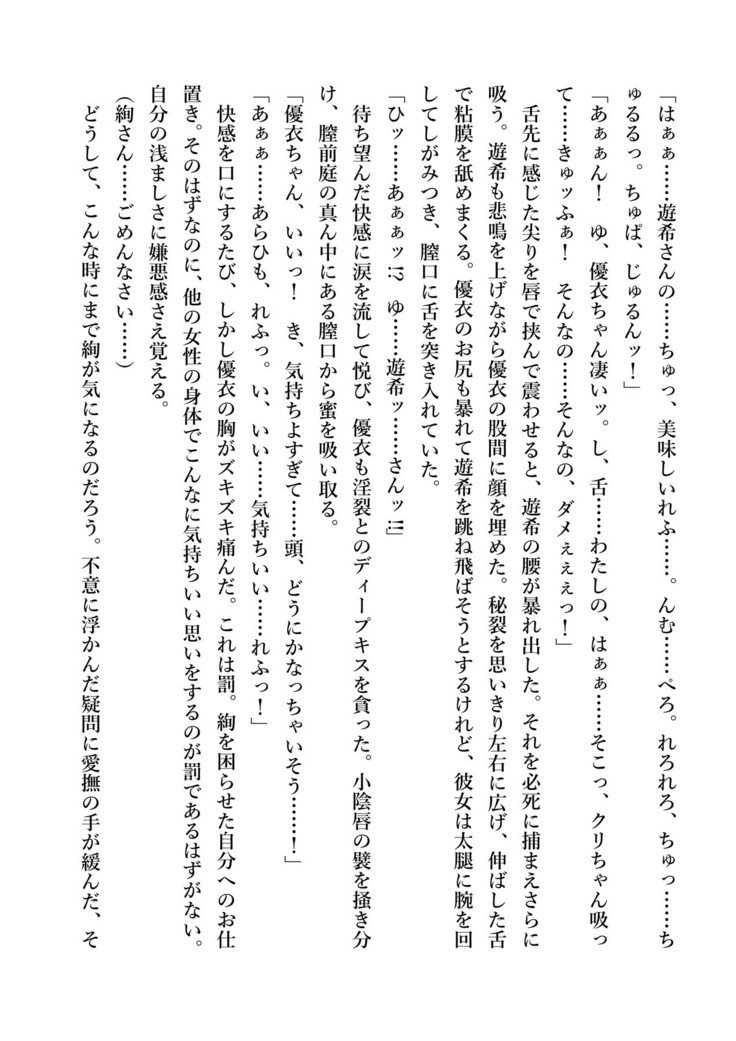 「はぁぁ……遊希さんの……ちゅっ、美味しいれふ……。んむ……ぺろ。れろれろ、ちゅっ……ち
ゅるるっ。ちゅぱ、じゅるんッ！」
「あぁぁん！　ゆ、優衣ちゃん凄いッ。し、舌……わたしの、はぁぁ……そこっ、クリちゃん吸っ
て……きゅッふぁ！　そんなの……そんなの、ダメぇぇぇっ！」
　舌先に感じた尖りを唇で挟んで震わせると、遊希の腰が暴れ出した。それを必死に捕まえさらに
吸う。遊希も悲鳴を上げながら優衣の股間に顔を埋めた。秘裂を思いきり左右に広げ、伸ばした舌
で粘膜を舐めまくる。優衣のお尻も暴れて遊希を跳ね飛ばそうとするけれど、彼女は太腿に腕を回
してしがみつき、膣口に舌を突き入れていた。
「ひッ……あぁぁッ!?　ゆ……遊希ッ……さんッ!!」
　待ち望んだ快感に涙を流して悦び、優衣も淫裂とのディープキスを貪った。小陰唇の襞を掻き分
け、膣前庭の真ん中にある膣口から蜜を吸い取る。
「優衣ちゃん、いいっ！　き、気持ちよすぎて……頭、どうにかなっちゃいそう……！」
「あぁぁ……あらひも、れふっ。い、いい……気持ちいい……れふっ！」
　快感を口にするたび、しかし優衣の胸がズキズキ痛んだ。これは罰。絢を困らせた自分へのお仕
置き。そのはずなのに、他の女性の身体でこんなに気持ちいい思いをするのが罰であるはずがない。
自分の浅ましさに嫌悪感さえ覚える。
（絢さん……ごめんなさい……）
　どうして、こんな時にまで絢が気になるのだろう。不意に浮かんだ疑問に愛撫の手が緩んだ、そ